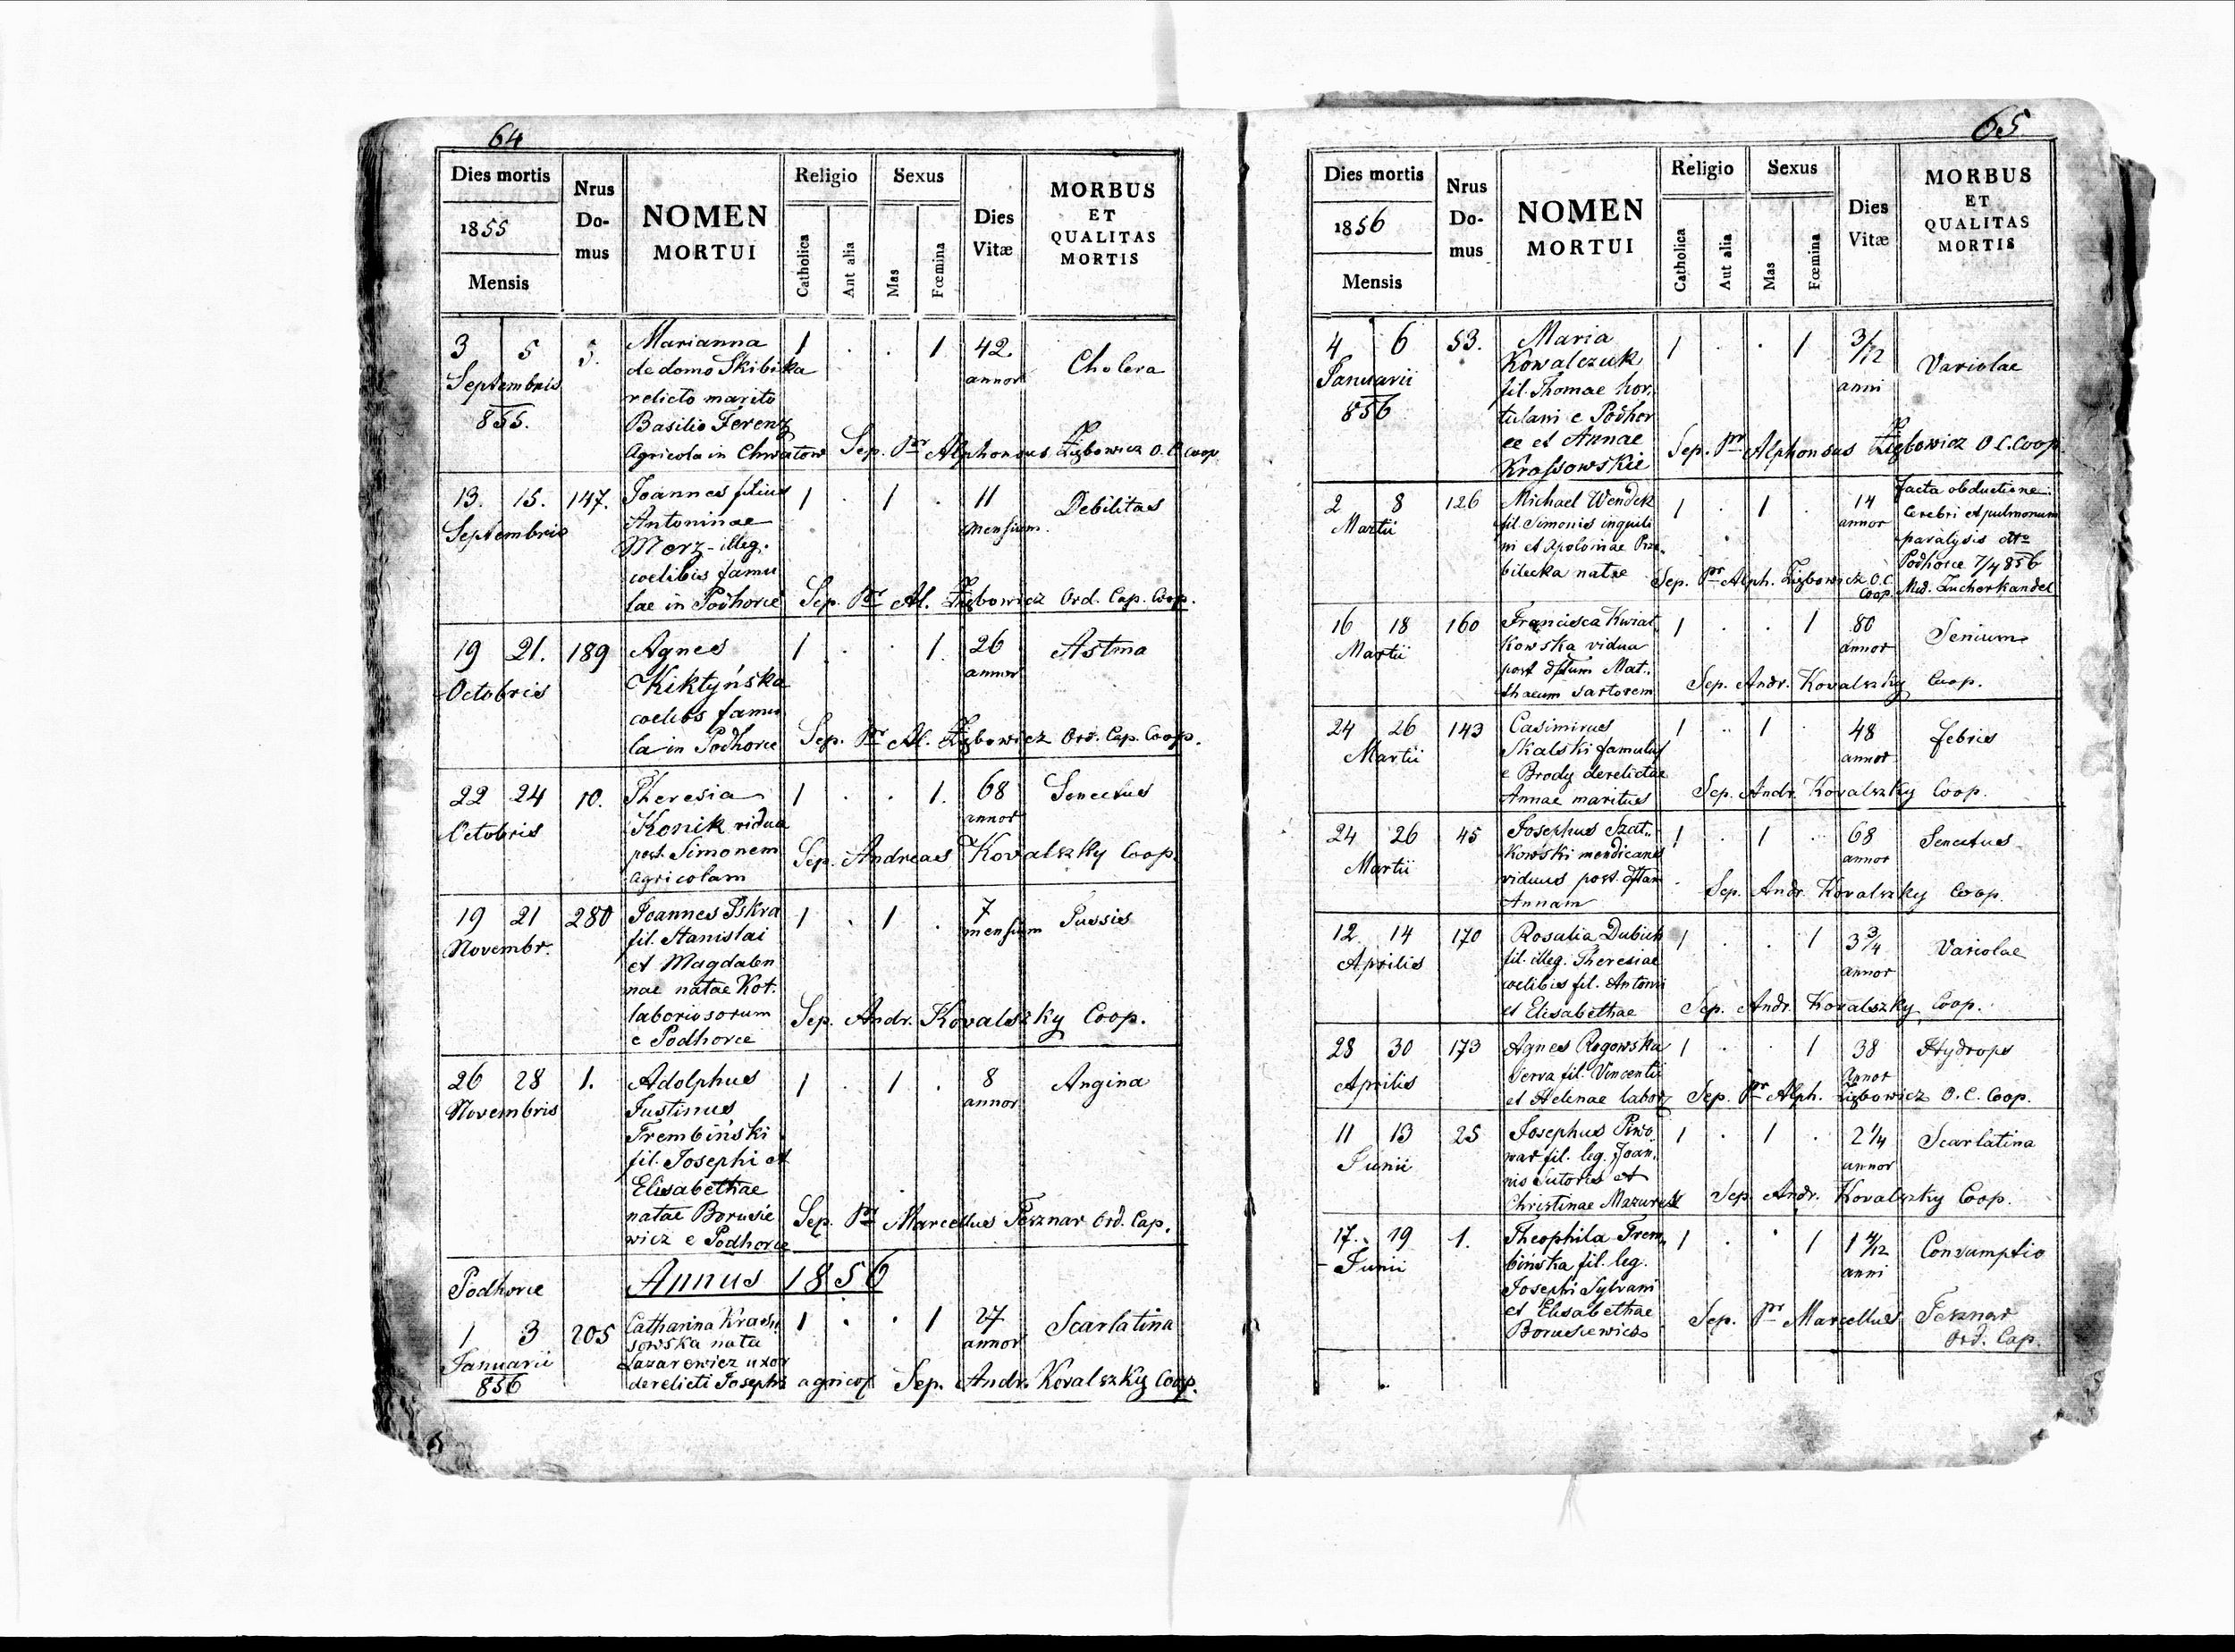 64
Dies mortis
1855
Mensis
Nrus
Do-
mus
NOMEN
MORTUI
Religio
Catholica
Aut alia
Sexus
Mas
Fœmina
Dies
Vitæ
MORBUS
ET
QUALITAS
MORTIS
3 5 5. Marianna 1 . . 1 42 Cholera
Septembris de domo Skibicka annor
855. relicto marito
Basilio Ferenz
Agricola in Chwatow Sep. Pr Alphonsus Ziębowicz O. C. Coop
13. 15. 147. Joannes filius 1 . 1 . 11 Debilitas
Septembris Antoninae mensium.
Merz - illeg.
coelibis famu
lae in Podhorce Sep. Pr Al. Ziębowicz Ord. Cap. Coop.
19 21. 189 Agnes 1 . . 1. 26 Astma
Octobris Kiktyńska annor
coelebs famu
la in Podhorce Sep. Pr Al. Ziębowicz Ord. Cap. Coop.
22 24 10. Theresia 1 . . 1. 68 Senectus
Octobris Konik vidua annor
post. Simonem Sep. Andreas Kovalszky Coop.
agricolam
19 21 280 Joannes Iskra 1 . 1 . 7 Tussis
Novembr. fil. Stanislai mensium
et Magdalen
nae natae Kot.
laboriosorum Sep. Andr. Kovalszky Coop.
e Podhorce
26 28 1. Adolphus 1 . 1 . 8 Angina
Novembris Justinus annor
Trembiński
fil. Josephi et
Elisabethae
natae Borusie Sep. Pr Marcellus Fesznar Ord. Cap.
wicz e Podhorce
Podhorce Annus 1856
1 3 205 Catharina Kras 1 . . 1 27 Scarlatina
Januarii sowska nata annor
856 Lazarewicz uxor
derelicti Josephi agricol Sep. Andr. Kovalszky Coop.
65
Dies mortis
1856
Mensis
Nrus
Do-
mus
NOMEN
MORTUI
Religio
Catholica
Aut alia
Sexus
Mas
Fœmina
Dies
Vitæ
MORBUS
ET
QUALITAS
MORTIS
4 6 53. Maria 1 . . 1 3/12 Variolae
Januarii Kowalczuk anni
856 fil. Thomae hor.
tulani e Podhor
ce et Annae Sep. Pr Alphonsus Ziębowicz O C. Coop.
Krassowskie
2 8 126 Michael Wendek 1 . 1 . 14 facta obductione
Martii fil. Simonis inquili annor Cerebri et pulmonum
ni et Apoloniae Prze paralysis dtto
bilecka natae Sep. Pr Alph. Ziębowicz O. C. Coop. Podhorce 7/4 856
Med. Zucherkandel
16 18 160 Francisca Kwiat 1 . . 1 80 Senium
Martii kowska vidua annor
post dftum Mat..
thaeum sartorem Sep. Andr. Kovalszky Coop.
24 26 143 Casimirus 1 . 1 . 48 febris
Martii Skalski famulus annor
e Brody derelictae
Annae maritus Sep. Andr. Kovalszky Coop.
24 26 45 Josephus Szat.. 1 . 1 . 68 Senectus
Martii kowski mendicans annor
viduus post dftam Sep. Andr. Kovalszky Coop.
Annam
12 14 170 Rosalia Dubich 1 . . 1 3 3/4 Variolae
Aprilis fil. illeg. Theresiae annor
coelibis fil. Antonii
et Elisabethae Sep. Andr. Kovalszky Coop.
28 30 173 Agnes Rogowska 1 . . 1 38 Hydrops
Aprilis serva fil. Vincentii annor
et Helenae labor Sep. Pr Alph. Ziębowicz O. C. Coop.
11 13 25 Josephus Piwo 1 . 1 . 2 1/4 Scarlatina
Junii war fil. leg. Joan. annor
nis sutoris et
Christinae Mazurek Sep. Andr. Kovalszky Coop.
17. 19 1. Theophila Trem 1 . . 1 1 4/12 Consumptio
Junii bińska fil. leg. anni
Josephi Sylvani
et Elisabethae Sep. Pr Marcellus Fesznar
Borusiewicz Ord. Cap.